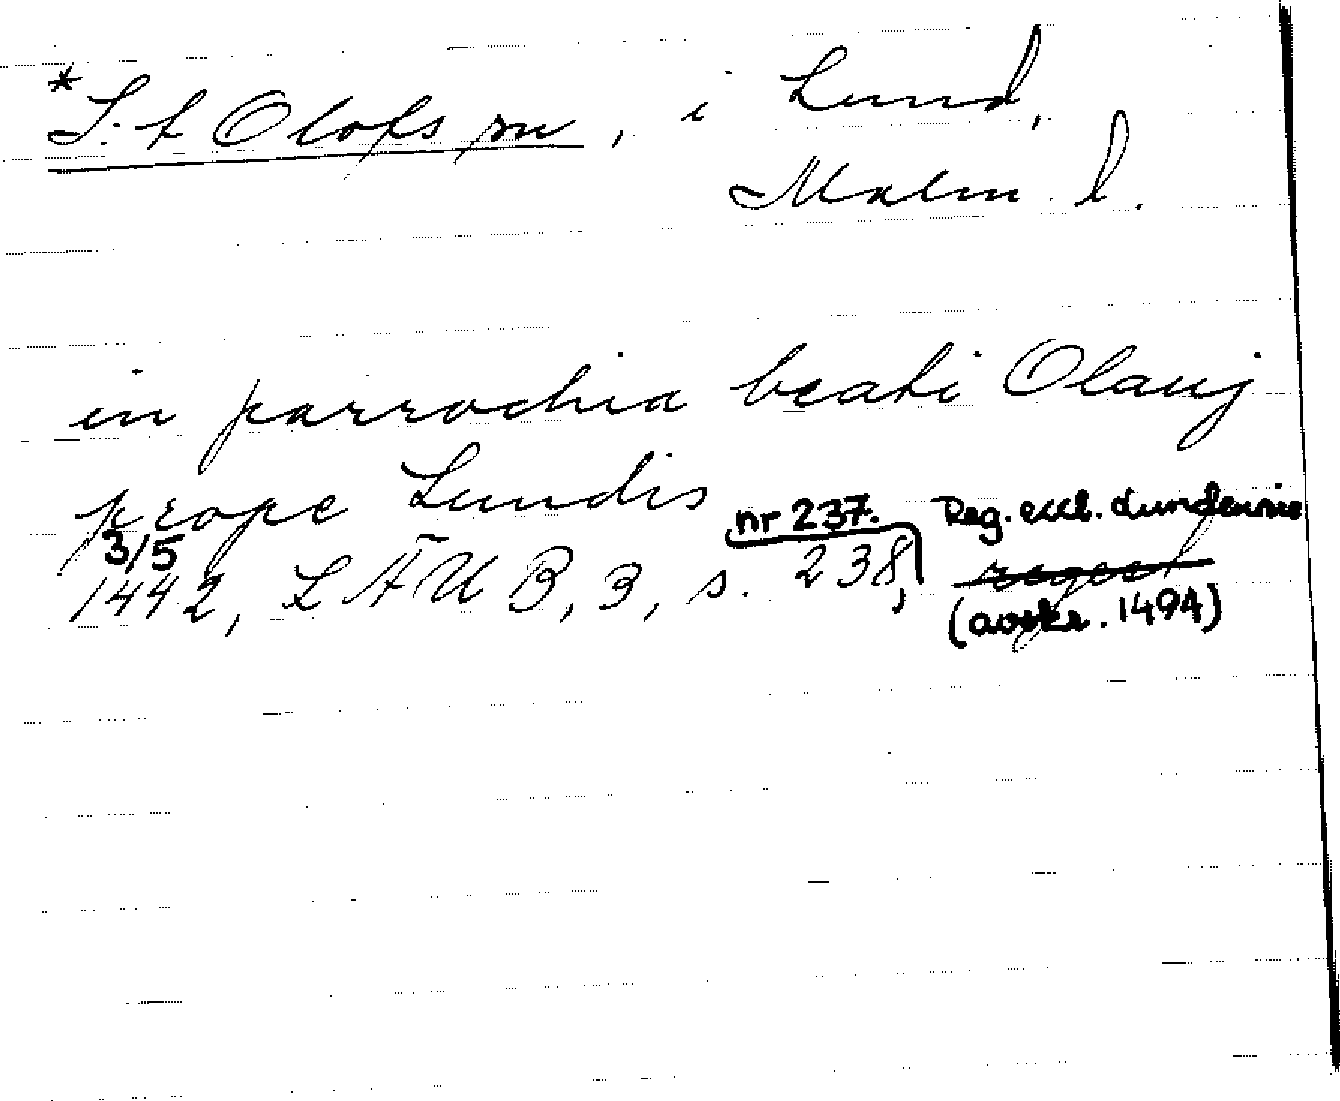 *S:t Olofs sn, i Lund,
Malm l.
in parrochia beati Olauj
prope Lundis
nr 237. Reg. eccl. Lundensis
3/5
1442, LÄUB, 3, s. 238, regest
(avskr. 1494)